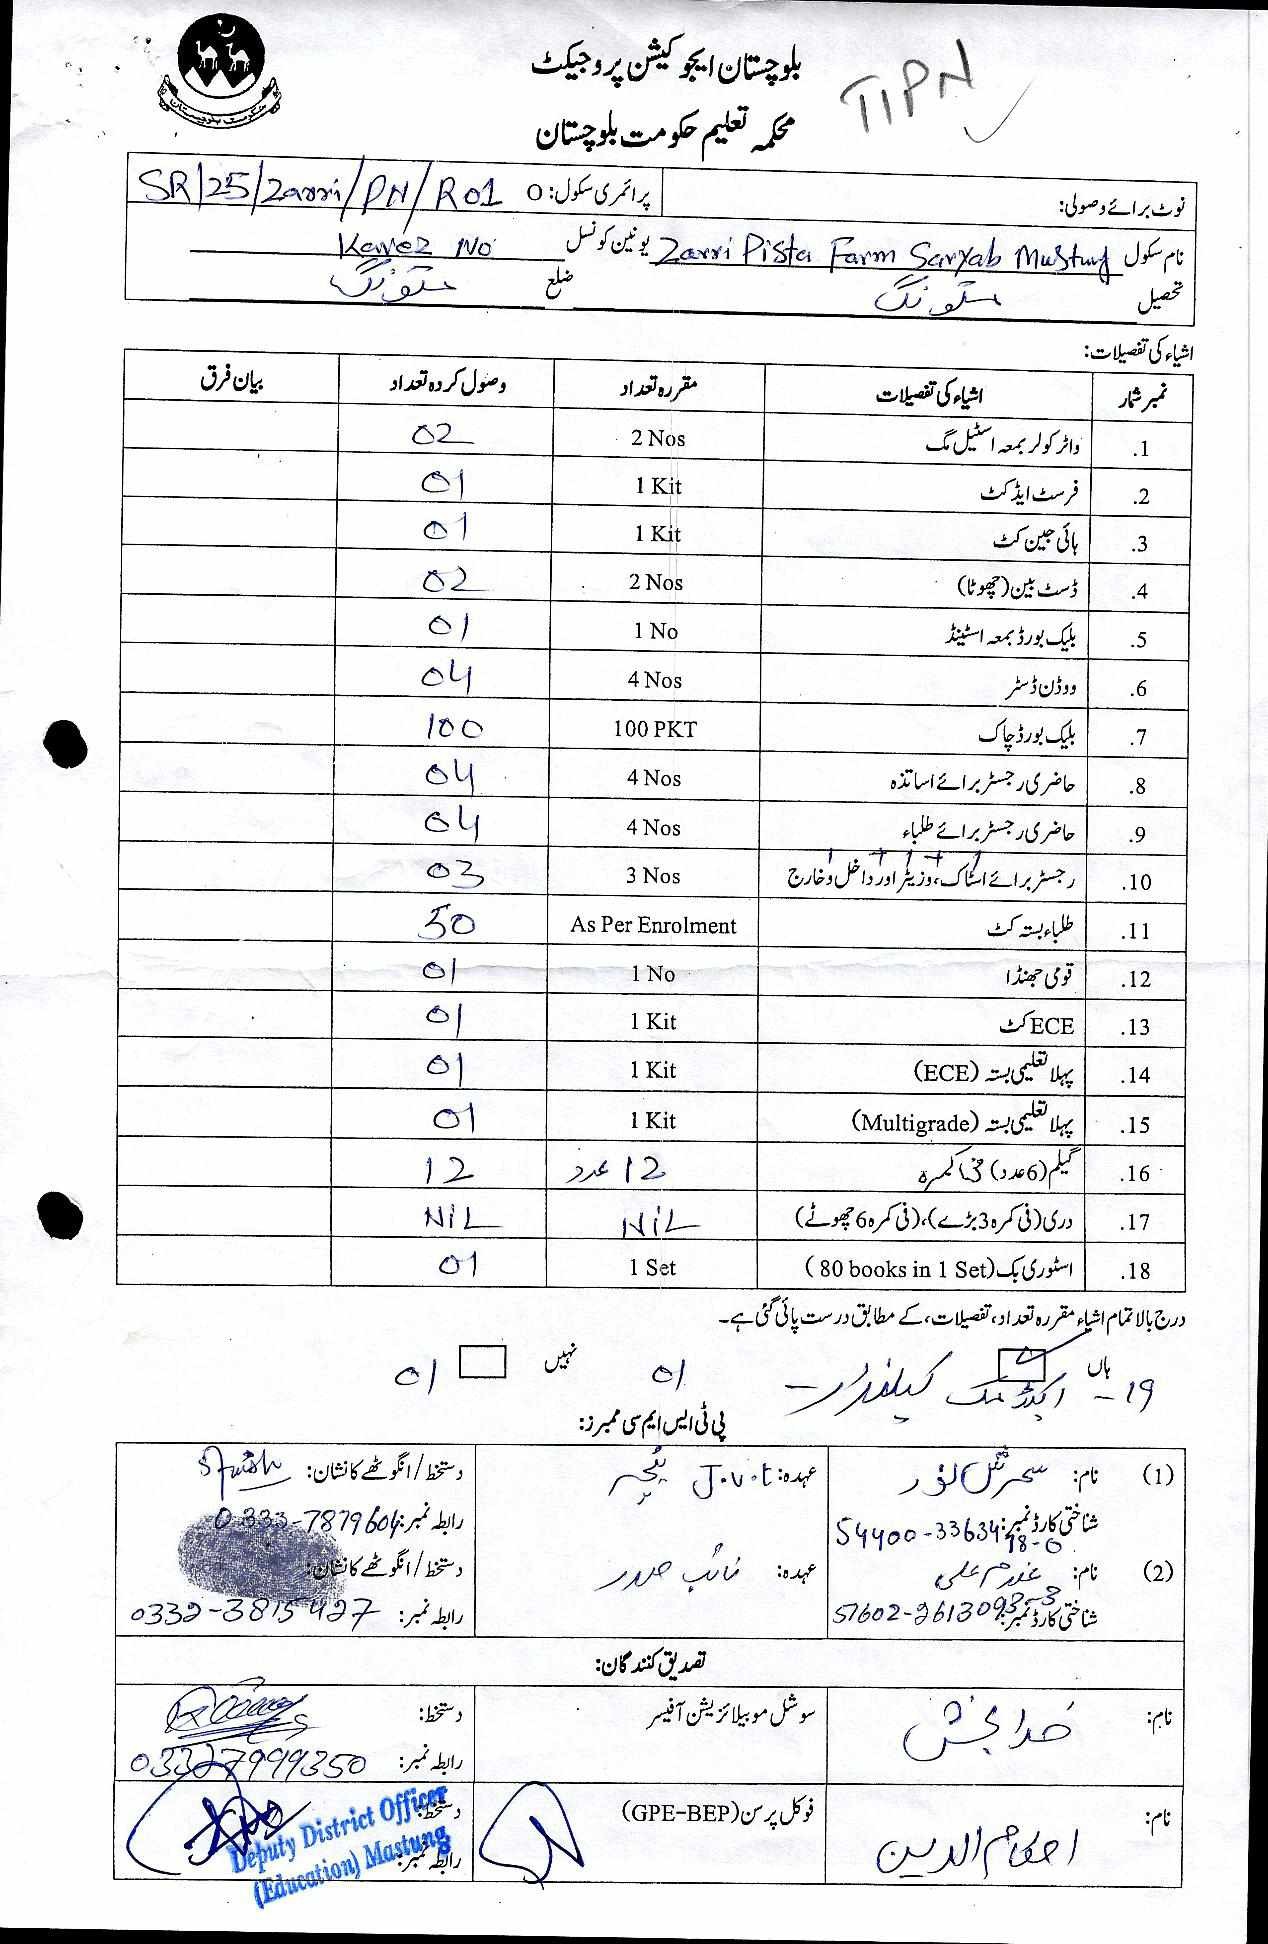 حکومت بلوچستان
بلوچستان ایجوکیشن پروجیکٹ
TIPN
محکمہ تعلیم حکومت بلوچستان
نوٹ برائے وصولی: پرائمری سکول: O SR/25/Zarri/PN/R01
نام سکول Zarri Pista Farm Saryab Mustung یونین کونسل Karez No
تحصیل مستونگ ضلع مستونگ
اشیاء کی تفصیلات:
نمبر شمار اشیاء کی تفصیلات مقررہ تعداد وصول کردہ تعداد بیان فرق
1. واٹر کولر بمعہ اسٹیل مگ 2 Nos 02
2. فرسٹ ایڈ کٹ 1 Kit 01
3. ہائی جین کٹ 1 Kit 01
4. ڈسٹ بین (چھوٹا) 2 Nos 02
5. بلیک بورڈ بمعہ اسٹینڈ 1 No 01
6. ووڈن ڈسٹر 4 Nos 04
7. بلیک بورڈ چاک 100 PKT 100
8. حاضری رجسٹر برائے اساتذہ 4 Nos 04
9. حاضری رجسٹر برائے طلباء 4 Nos 04
10. رجسٹر برائے اسٹاک، وزیٹر اور داخل و خارج 3 Nos 03
11. طلباء بستہ کٹ As Per Enrolment 50
12. قومی جھنڈا 1 No 01
13. ECE کٹ 1 Kit 01
14. پہلا تعلیمی بستہ (ECE) 1 Kit 01
15. پہلا تعلیمی بستہ (Multigrade) 1 Kit 01
16. گلیم (6 عدد) فی کمرہ 12 عدد 12
17. دری (فی کمرہ 3 بڑے)، (فی کمرہ 6 چھوٹے) NIL NIL
18. اسٹوری بک (80 books in 1 Set) 1 Set 01
درج بالا تمام اشیاء مقررہ تعداد، تفصیلات، کے مطابق درست پائی گئی ہے۔
ہاں نہیں
19- اکیڈمک کیلنڈر 01 01
پی ٹی ایس ایم سی ممبرز:
(1) نام: سحرش نور عہدہ: J.v.t ٹیچر دستخط/انگوٹھے کا نشان:
شناختی کارڈ نمبر: 54400-3363498-0 رابطہ نمبر: 0333-7879604
(2) نام: علی عہدہ: نائب صدر دستخط/انگوٹھے کا نشان:
شناختی کارڈ نمبر: 51602-2613093-3 رابطہ نمبر: 0332-3815427
تصدیق کنندگان:
نام: خدا بخش سوشل موبیلائزیشن آفیسر دستخط:
رابطہ نمبر: 03327999350
نام: احکام الدین فوکل پرسن (GPE-BEP) دستخط:
رابطہ نمبر:
Deputy District Officer
(Education) Mastung